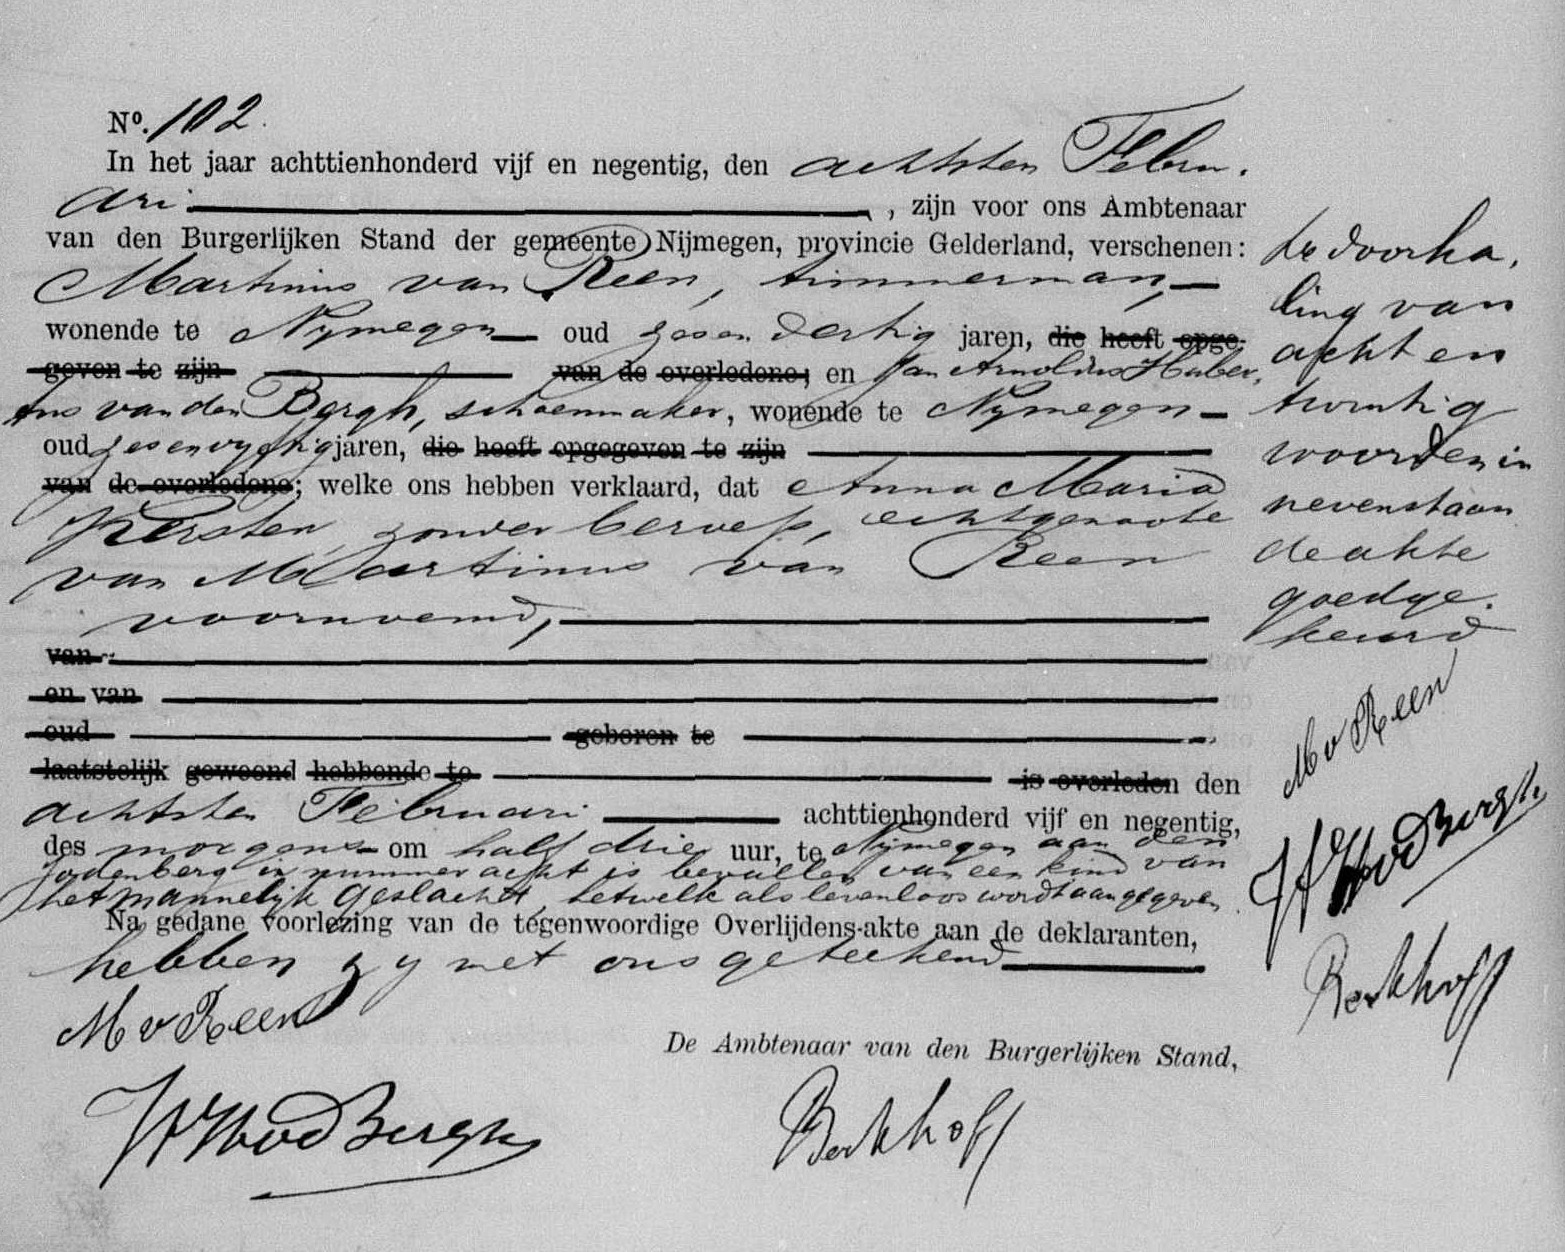 Nº. 102.
In het jaar achttienhonderd vijf en negentig, den achtsten Febru.
ari , zijn voor ons Ambtenaar
van den Burgerlijken Stand der gemeente Nijmegen, provincie Gelderland, verschenen:
Martinus van Reen, timmerman,
wonende te Nymegen oud zes en dertig jaren, die heeft opge-
geven te zijn van de overledene; en Jan Arnoldus Huber,
tus van den Bergh, schoenmaker, wonende te Nymegen
oud zes en vyftig jaren, die heeft opgegeven te zijn
van de overledene; welke ons hebben verklaard, dat Anna Maria
Kersten, zonder beroep, echtgenoote
van Martinus van Reen
voornoemd,
van
en van
oud geboren te
laatstelijk gewoond hebbende te is overleden den
achtsten Februari achttienhonderd vijf en negentig,
des morgens om half drie uur, te Nymegen aan den
Jodenberg in nummer acht is bevallen van een kind van
het mannelijk geslacht, hetwelk als levenloos wordt aangegeven.
Na gedane voorlezing van de tegenwoordige Overlijdens-akte aan de deklaranten,
hebben zy met ons geteekend
M v Reen
JAH vd Bergh
De Ambtenaar van den Burgerlijken Stand,
Berkhoff
de doorha,
ling van
acht en
twintig
woorden in
nevenstaan
de akte
goedge.
keurd
M v Reen
JAH vd Bergh
Berkhoff